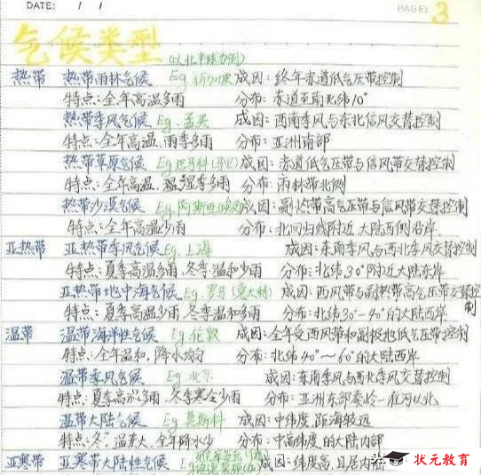 DATE: / /
PAGE: 3
气候类型 (以北半球为例)
热带 热带雨林气候 Eg. 新加坡 成因: 终年赤道低气压带控制
特点: 全年高温多雨 分布: 赤道至南北纬10°
热带季风气候 Eg. 孟买 成因: 西南季风与东北信风交替控制
特点: 全年高温, 雨季多雨 分布: 亚洲南部
热带草原气候 Eg. 巴马科 成因: 赤道低气压带与信风带交替控制
特点: 全年高温 湿季多雨 分布: 雨林带北侧
热带沙漠气候 Eg. 成因: 副热带高气压带与信风带交替控制
特点: 全年高温少雨 分布: 北回归线附近大陆西侧沿岸.
亚热带 亚热带季风气候 Eg. 上海 成因: 东南季风与西北季风交替控制
特点: 夏季高温多雨. 冬季温和少雨 分布: 北纬30°附近大陆东岸
亚热带地中海气候 Eg. 罗马 (意大利) 成因: 西风带与副热带高气压带交替控制
特点: 夏季高温少雨 冬季温和多雨 分布: 北纬30°-40°的大陆西岸
温带 温带海洋性气候 Eg. 伦敦 成因: 全年受西风带和副极地低气压带控制
特点: 全年温和, 降水均匀 分布: 北纬40°~60°的大陆西岸
温带季风气候 Eg. 北京 成因: 东南季风与西北季风交替控制
特点: 夏季高温多雨. 冬季寒冷少雨 分布: 亚洲东部秦岭-淮河以北
温带大陆气候 Eg 莫斯科 成因: 中纬度, 距海较远
特点: 冬. 温差大. 全年降水少 分布: 中高纬度的大陆内部
亚寒带 亚寒带大陆性气候 Eg 成因: 纬度高, 且居内陆
状元教育